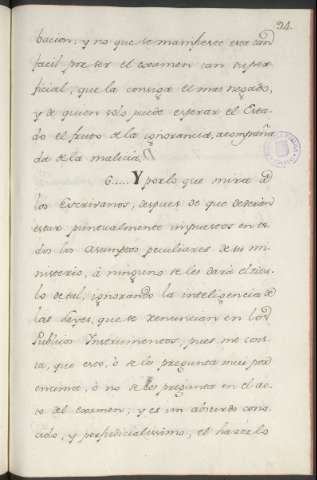 24.
bacion; y no que se manifieste esta tan
facil por ser el examen tan super
ficial, que la consiga el mas negado,
y de quien solo puede esperar el Esta
do el fruto de la ignorancia, acompaña
da de la malicia.
6..... Y por lo que mira a
los Escrivanos, despues de que deverian
estar puntualmente impuestos en to
dos los asumptos peculiares de su mi
nisterio, à ninguno se les dará el titu
lo de tal, ignorando la inteligencia de
las Leyes, que se renuncian en los
Publicos Instrumentos, pues me cons
ta, que esto, ò se les pregunta mui por
encima, ò no se les pregunta en el ac
to del examen; y es un absurdo cono
cido, y perjudicialissimo, el hazerlo